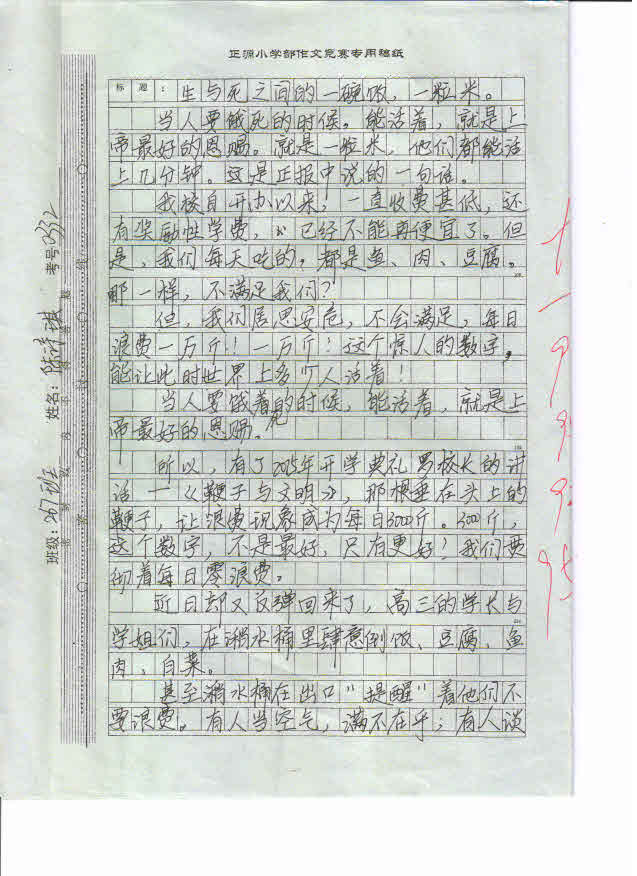 正源小学部作文竞赛专用稿纸
标题：生与死之间的一碗饭，一粒米。
当人要饿死的时候。能活着，就是上
帝最好的恩赐。就是一粒米，他们都能活
上几分钟。这是正报中说的一句话。
我校自开办以来，一直收费甚低，还
有奖励性学费，已经不能再便宜了。但
是，我们每天吃的。都是鱼、肉、豆腐。
那一样，不满足我们？
但，我们居思安危，不会满足，每日
浪费一万斤！一万斤！这个惊人的数字，
能让此时世界上多少人活着！
当人要饿着的时候，能活着，就是上
死
帝最好的恩赐。
所以，有了2015年开学典礼罗校长的讲
话—《鞭子与文明》，那根垂在头上的
鞭子，让浪费现象成为每日3000斤。3000斤，
这个数字，不是最好，只有更好！我们要
彻着每日零浪费。
近日却又反弹回来了，高三的学长与
学姐们，在潲水桶里肆意倒饭、豆腐、鱼
肉、白菜。
甚至潲水桶在出口“提醒”着他们不
要浪费。有人当空气，满不在乎；有人谈
班级：267班
姓名：
考号332
95